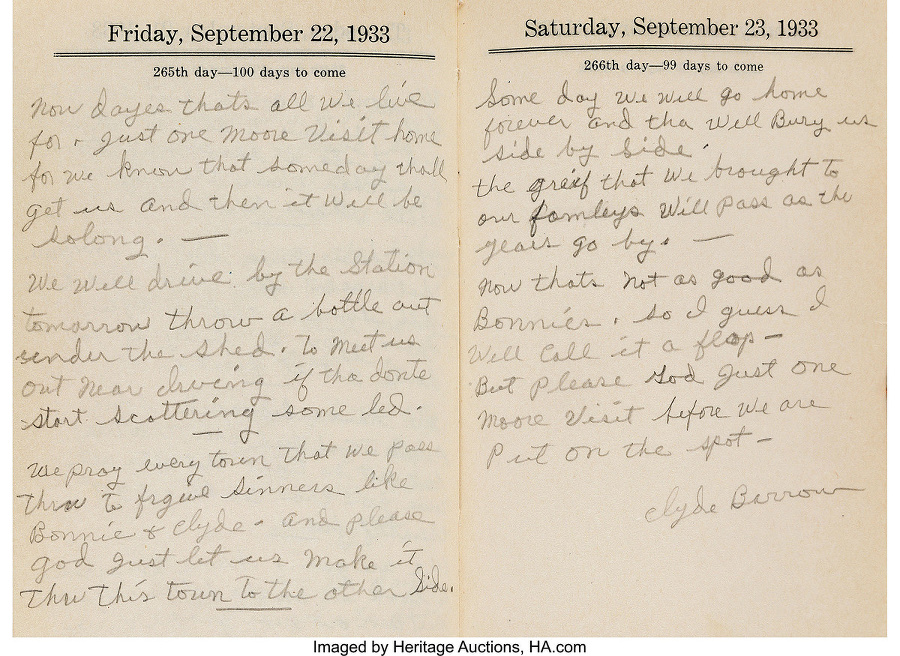 Friday, September 22, 1933
265th day—100 days to come
Now dayes thats all we live
for. Just one Moore Visit home
for we know that someday thall
get us and then it will be
solong. —
We will drive by the Station
tomorrow throw a bottle out
under the shed. To Meet us
out Near Irveing if tha donte
start scattering some led.
We pray every town that we pass
thru to frgive Sinners like
Bonnie & Clyde. and please
god Just let us Make it
thru this town to the other Side.
Saturday, September 23, 1933
266th day—99 days to come
Some day we will go home
forever and tha Will Bury us
side by side.
the greif that We brought to
our famleys Will pass as the
years go by. —
Now thats Not as good as
Bonnies. so I guess I
Will Call it a flop—
But Please God Just one
Moore Visit before We are
Put on the spot—
Clyde Barrow
Imaged by Heritage Auctions, HA.com